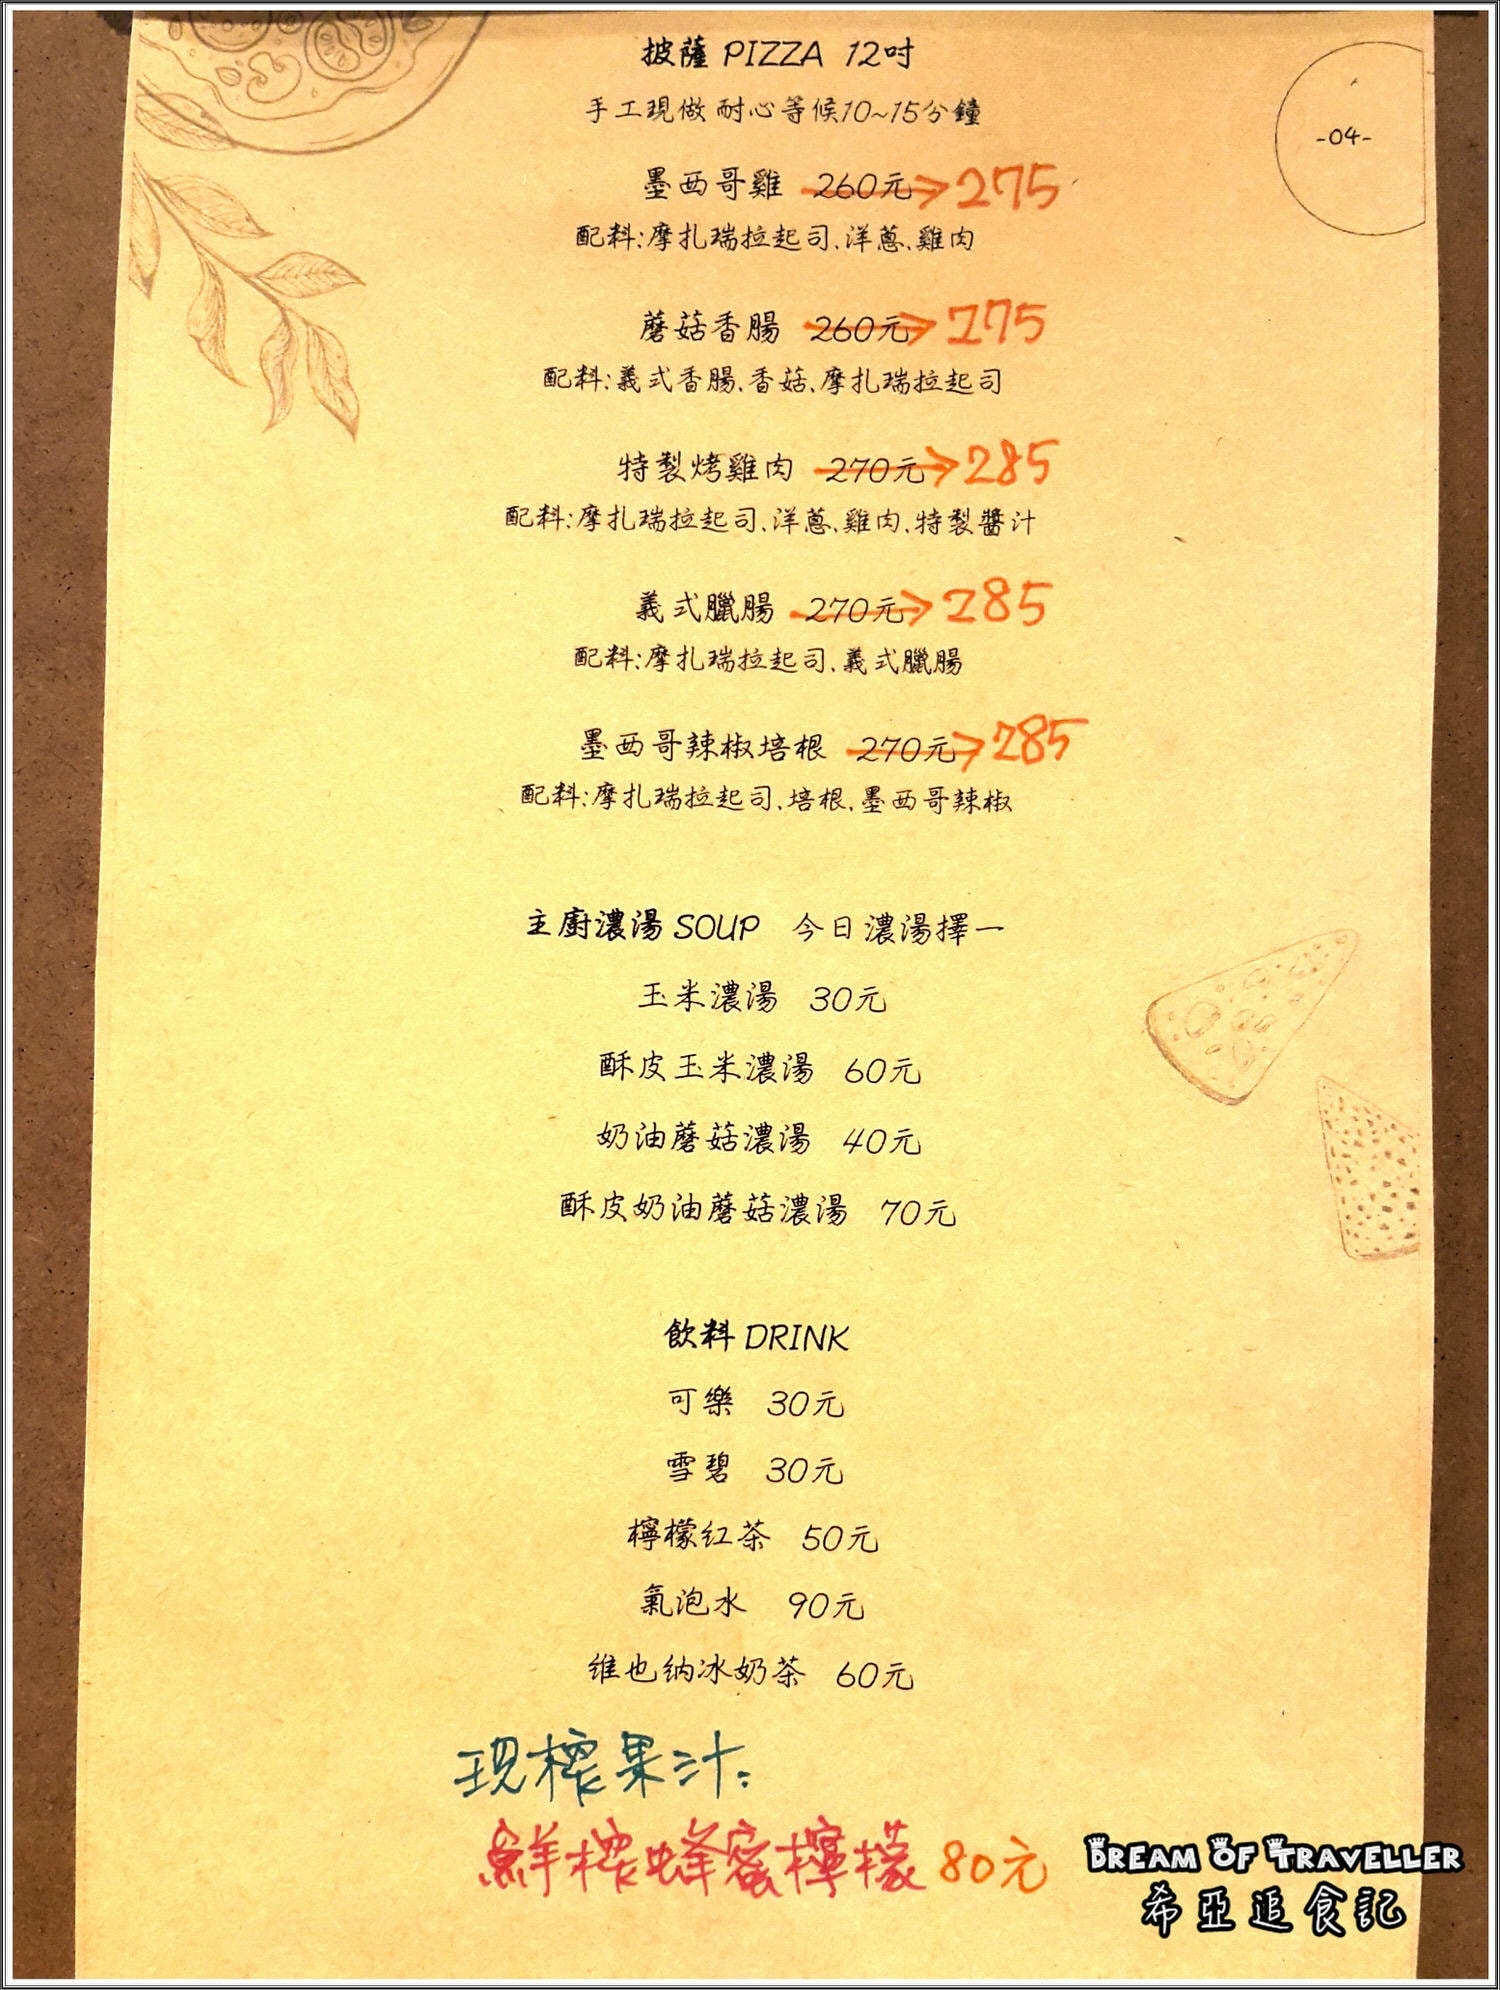 披薩 PIZZA 12吋
手工現做 耐心等候10~15分鐘
-04-
墨西哥雞 260元→275
配料:摩扎瑞拉起司.洋蔥.雞肉
蘑菇香腸 260元→275
配料:義式香腸.香菇.摩扎瑞拉起司
特製烤雞肉 270元→285
配料:摩扎瑞拉起司.洋蔥.雞肉.特製醬汁
義式臘腸 270元→285
配料:摩扎瑞拉起司.義式臘腸
墨西哥辣椒培根 270元→285
配料:摩扎瑞拉起司.培根.墨西哥辣椒
主廚濃湯 SOUP 今日濃湯擇一
玉米濃湯 30元
酥皮玉米濃湯 60元
奶油蘑菇濃湯 40元
酥皮奶油蘑菇濃湯 70元
飲料 DRINK
可樂 30元
雪碧 30元
檸檬紅茶 50元
氣泡水 90元
維也納冰奶茶 60元
現榨果汁:
鮮榨蜂蜜檸檬 80元
DREAM OF TRAVELLER
希亞追食記